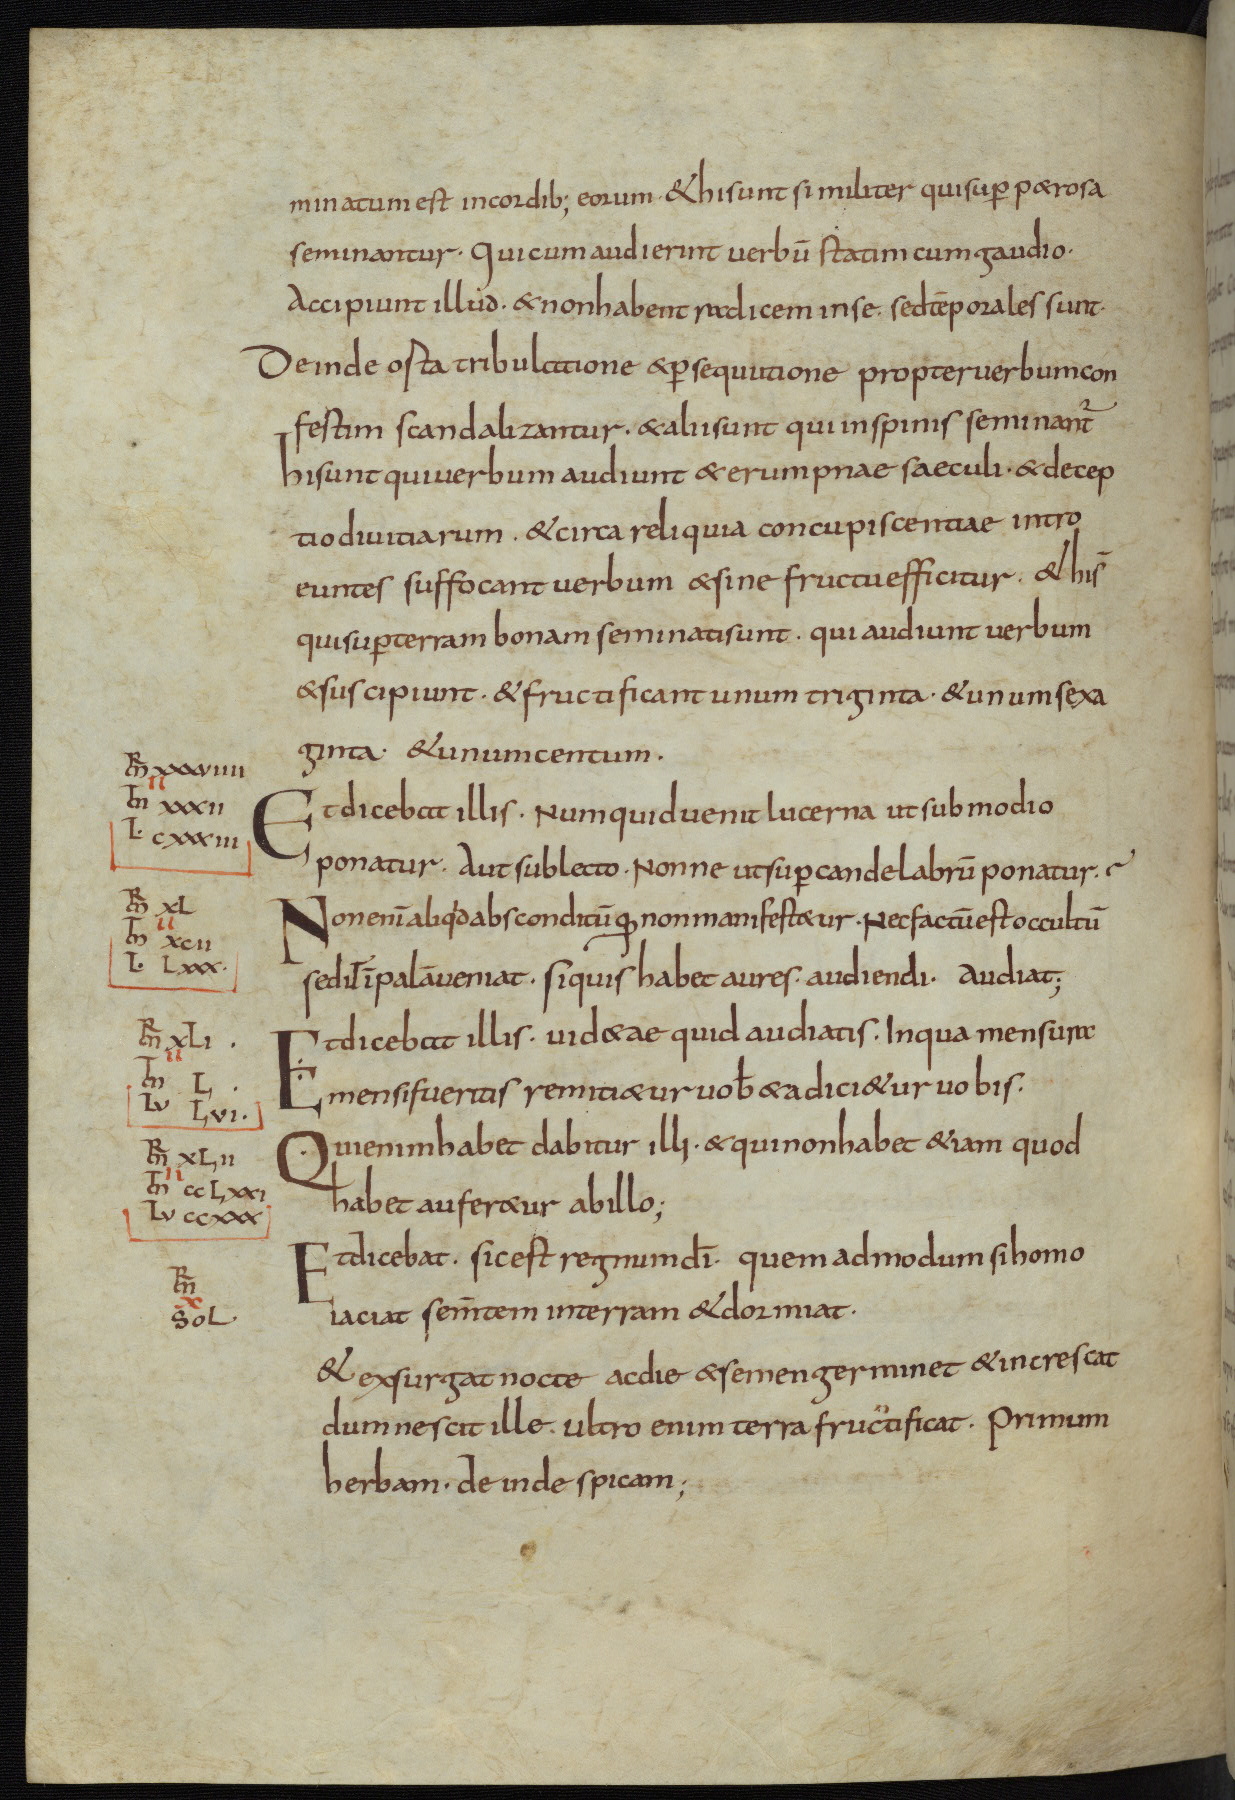 minatum est incordib; eorum · & hi sunt similiter qui sup̱ p&rosa
seminantur · Qui cum audierint verbū statim cum gaudio ·
Accipiunt illud · & non habent radicem in se · sed tēporales sunt ·
Deinde osta tribulatione & p̱sequutione propter verbum con
festim scandalizantur · & alii sunt qui in spinis seminant᷑
hi sunt qui verbum audiunt & erumpnae saeculi · & decep
tio divitiarum · & circa reliquia concupiscentiae intro
euntes suffocant verbum & sine fructu efficitur · & hi s̄
qui sup̱ terram bonam seminati sunt · qui audiunt verbum
& suscipiunt · & fructificant unum triginta · & unum sexa
ginta · & unum centum ·
m̄R xxxviiii
m̄t xxxii
ii
L · cxxxiii
Et dicebat illis · Numquid venit lucerna ut sub modio
ponatur · Aut sub lecto · Nonne ut sup̱ candelabrū ponatur ·
m̄R xL
ii
m̄t xcii
L · Lxxx ·
Non enī aliq̇d absconditū q̱ non manifest&ur · Nec factū est occultū
sed ut ī palā veniat · si quis habet aures · audiendi · Audiat;
m̄R xLi ·
ii
m̄t L ·
Lu Lvi ·
Et dicebat illis · uid&ae quid audiatis · In qua mensura
mensi fueritis remiti&ur uob̄ & adici&ur uobis ·
m̄R xLii
ii
m̄t ccLxxi
Lu ccxxx
Qui enim habet dabitur illi · & qui non habet &iam quod
habet aufer&ur ab illo;
m̄R
x
SoL ·
Et dicebat · sic est regnum dī · quem ad modum si homo
iaciat sem̄tem in terram & dormiat ·
& exsurgat nocte ac die & semen germinet & increscat
dum nescit ille · ultro enim terra fructificat · Primum
herbam · deinde spicam;